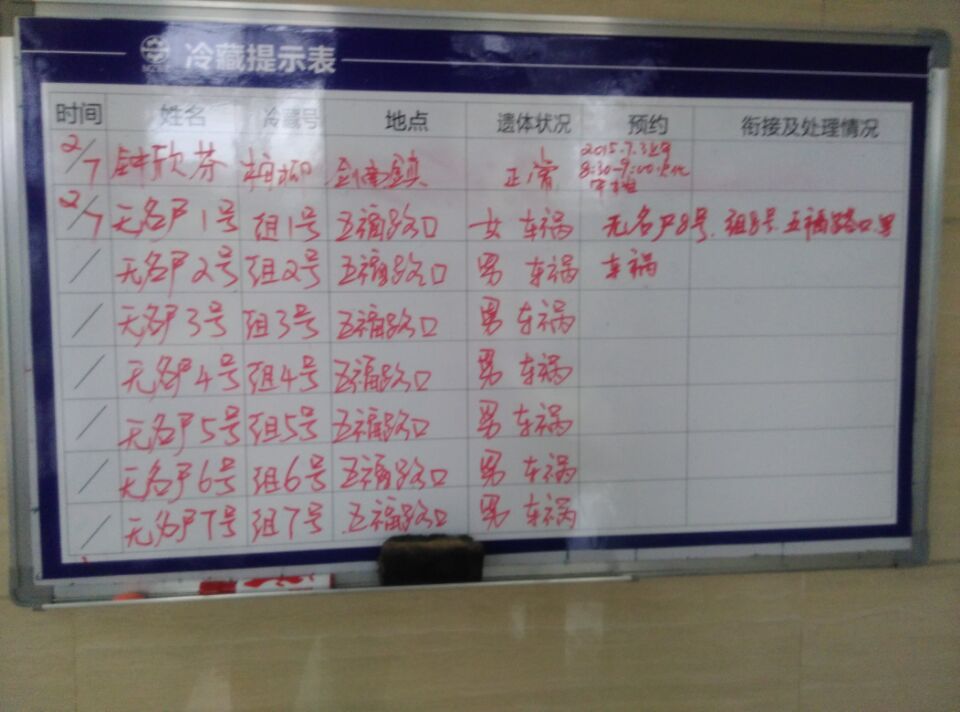 冷藏提示表
时间 姓名 冷藏号 地点 遗体状况 预约 衔接及处理情况
2/7 钟欣芬 梅柳 剑南镇 正常 2015.7.3上午 8:30-9:00火化
2/7 无名尸1号 组1号 五福路口 女 车祸 无名尸8号.组8号.五福路口.男
/ 无名尸2号 组2号 五福路口 男 车祸 车祸
/ 无名尸3号 组3号 五福路口 男 车祸
/ 无名尸4号 组4号 五福路口 男 车祸
/ 无名尸5号 组5号 五福路口 男 车祸
/ 无名尸6号 组6号 五福路口 男 车祸
/ 无名尸7号 组7号 五福路口 男 车祸